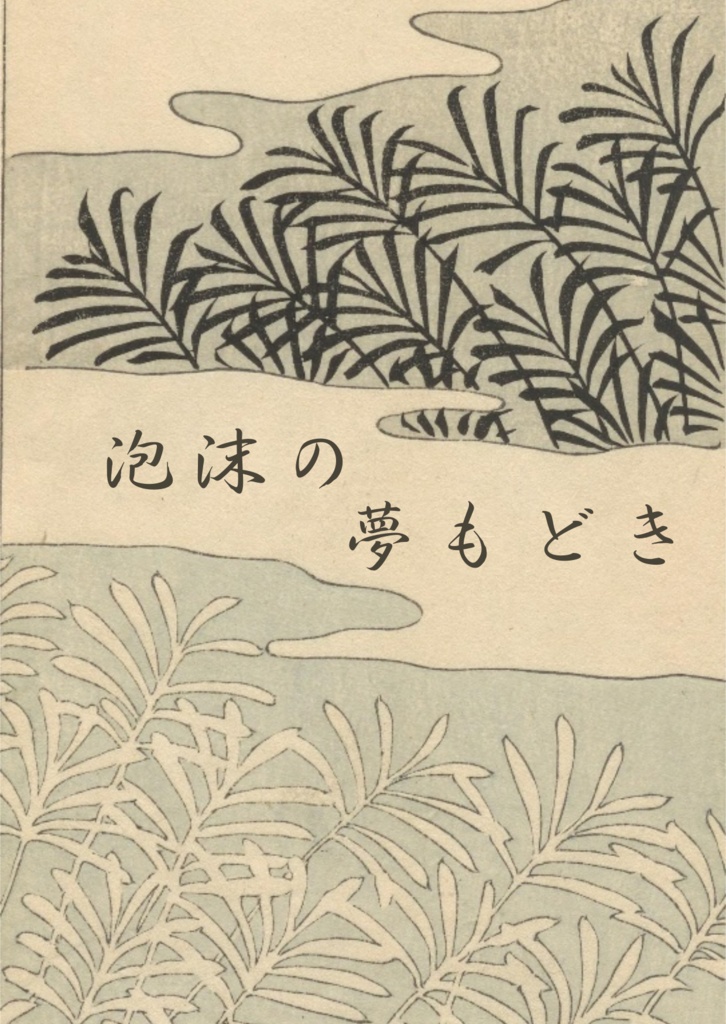 泡沫の
夢もどき